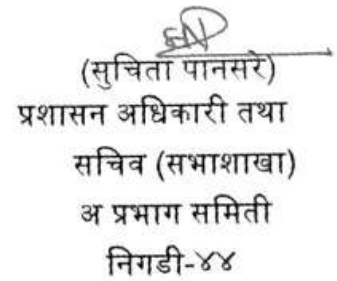 (सुचिता पानसरे)
प्रशासन अधिकारी तथा
सचिव (सभाशाखा)
अ प्रभाग समिती
निगडी-४४